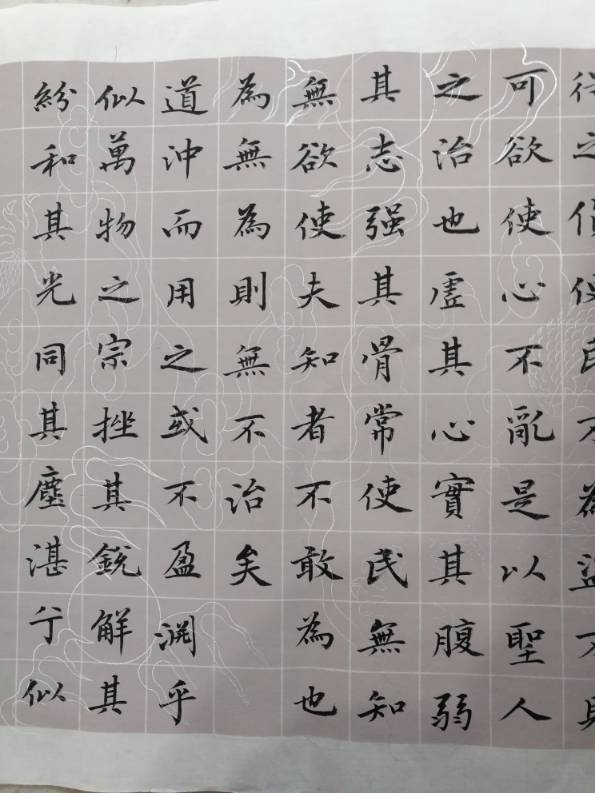 可欲使心不亂是以聖人
之治也虛其心實其腹弱
其志强其骨常使民無知
無欲使夫知者不敢為也
為無為則無不治矣
道沖而用之或不盈渊乎
似萬物之宗挫其銳解其
紛和其光同其塵湛兮似